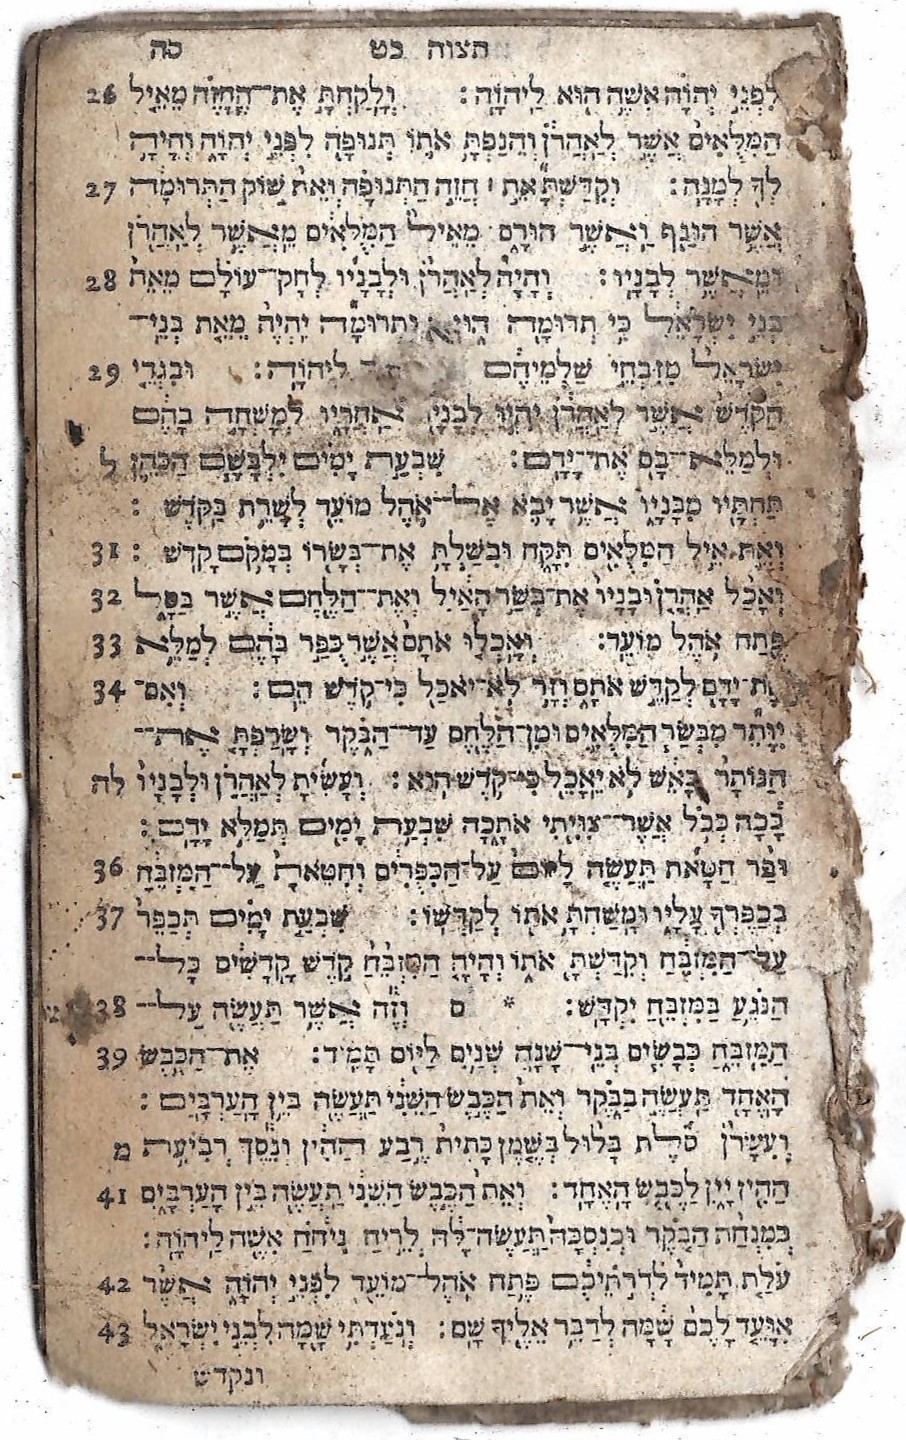 תצוה כט כה
לִפְנֵ֣י יְהוָ֔ה אִשֶּׁ֥ה ה֖וּא לַיהוָֽה׃ וְלָקַחְתָּ֣ אֶת־הֶֽחָזֶ֗ה מֵאֵ֤יל 26
הַמִּלֻּאִים֙ אֲשֶׁ֣ר לְאַהֲרֹ֔ן וְהֵנַפְתָּ֥ אֹת֛וֹ תְּנוּפָ֖ה לִפְנֵ֣י יְהוָ֑ה וְהָיָ֥ה
לְךָ֖ לְמָנָֽה׃ וְקִדַּשְׁתָּ֞ אֵ֣ת ׀ חֲזֵ֣ה הַתְּנוּפָ֗ה וְאֵת֙ שׁ֣וֹק הַתְּרוּמָ֔ה 27
אֲשֶׁ֥ר הוּנַ֖ף וַאֲשֶׁ֣ר הוּרָ֑ם מֵאֵיל֙ הַמִּלֻּאִ֔ים מֵאֲשֶׁ֥ר לְאַהֲרֹ֖ן
וּמֵאֲשֶׁ֥ר לְבָנָֽיו׃ וְהָיָה֩ לְאַהֲרֹ֨ן וּלְבָנָ֜יו לְחָק־עוֹלָ֗ם מֵאֵת֙ 28
בְּנֵ֣י יִשְׂרָאֵ֔ל כִּ֥י תְרוּמָ֖ה ה֑וּא וּתְרוּמָ֞ה יִהְיֶ֨ה מֵאֵ֤ת בְּנֵֽי־
יִשְׂרָאֵל֙ מִזִּבְחֵ֣י שַׁלְמֵיהֶ֔ם לַיהוָֽה׃ וּבִגְדֵ֤י 29
הַקֹּ֙דֶשׁ֙ אֲשֶׁ֣ר לְאַהֲרֹ֔ן יִהְי֥וּ לְבָנָ֖יו אַחֲרָ֑יו לְמָשְׁחָ֣ה בָהֶ֔ם
וּלְמַלֵּא־בָ֖ם אֶת־יָדָֽם׃ שִׁבְעַ֣ת יָמִ֗ים יִלְבָּשָׁ֧ם הַכֹּהֵ֛ן ל
תַּחְתָּ֖יו מִבָּנָ֑יו אֲשֶׁ֥ר יָבֹ֛א אֶל־אֹ֥הֶל מוֹעֵ֖ד לְשָׁרֵ֥ת בַּקֹּֽדֶשׁ׃
וְאֵ֛ת אֵ֥יל הַמִּלֻּאִ֖ים תִּקָּ֑ח וּבִשַּׁלְתָּ֥ אֶת־בְּשָׂר֖וֹ בְּמָקֹ֥ם קָדֹֽשׁ׃ 31
וְאָכַ֨ל אַהֲרֹ֤ן וּבָנָיו֙ אֶת־בְּשַׂ֣ר הָאַ֔יִל וְאֶת־הַלֶּ֖חֶם אֲשֶׁ֣ר בַּסָּ֑ל 32
פֶּ֖תַח אֹ֥הֶל מוֹעֵֽד׃ וְאָכְל֤וּ אֹתָם֙ אֲשֶׁ֣ר כֻּפַּ֣ר בָּהֶ֔ם לְמַלֵּ֥א 33
אֶת־יָדָ֖ם לְקַדֵּ֣שׁ אֹתָ֑ם וְזָ֥ר לֹא־יֹאכַ֖ל כִּי־קֹ֥דֶשׁ הֵֽם׃ וְאִם־ 34
יִוָּתֵ֞ר מִבְּשַׂ֧ר הַמִּלֻּאִ֛ים וּמִן־הַלֶּ֖חֶם עַד־הַבֹּ֑קֶר וְשָׂרַפְתָּ֤ אֶת־
הַנּוֹתָר֙ בָּאֵ֔שׁ לֹ֥א יֵאָכֵ֖ל כִּי־קֹ֥דֶשׁ הֽוּא׃ וְעָשִׂ֜יתָ לְאַהֲרֹ֤ן וּלְבָנָיו֙ לה
כָּ֔כָה כְּכֹ֥ל אֲשֶׁר־צִוִּ֖יתִי אֹתָ֑כָה שִׁבְעַ֥ת יָמִ֖ים תְּמַלֵּ֥א יָדָֽם׃
וּפַ֨ר חַטָּ֜את תַּעֲשֶׂ֤ה לַיּוֹם֙ עַל־הַכִּפֻּרִ֔ים וְחִטֵּאתָ֙ עַל־הַמִּזְבֵּ֔חַ 36
בְּכַפֶּרְךָ֖ עָלָ֑יו וּמָֽשַׁחְתָּ֥ אֹת֖וֹ לְקַדְּשֽׁוֹ׃ שִׁבְעַ֣ת יָמִ֗ים תְּכַפֵּר֙ 37
עַל־הַמִּזְבֵּ֔חַ וְקִדַּשְׁתָּ֖ אֹת֑וֹ וְהָיָ֤ה הַמִּזְבֵּ֙חַ֙ קֹ֣דֶשׁ קָֽדָשִׁ֔ים כָּל־
הַנֹּגֵ֥עַ בַּמִּזְבֵּ֖חַ יִקְדָּֽשׁ׃ * ס וְזֶ֕ה אֲשֶׁ֥ר תַּעֲשֶׂ֖ה עַל־ 38
הַמִּזְבֵּ֑חַ כְּבָשִׂ֧ים בְּנֵֽי־שָׁנָ֛ה שְׁנַ֥יִם לַיּ֖וֹם תָּמִֽיד׃ אֶת־הַכֶּ֥בֶשׂ 39
הָאֶחָ֖ד תַּעֲשֶׂ֣ה בַבֹּ֑קֶר וְאֵת֙ הַכֶּ֣בֶשׂ הַשֵּׁנִ֔י תַּעֲשֶׂ֖ה בֵּ֥ין הָעַרְבָּֽיִם׃
וְעִשָּׂרֹ֨ן סֹ֜לֶת בָּל֨וּל בְּשֶׁ֤מֶן כָּתִית֙ רֶ֣בַע הַהִ֔ין וְנֵ֕סֶךְ רְבִיעִ֥ת מ
הַהִ֖ין יָ֑יִן לַכֶּ֖בֶשׂ הָאֶחָֽד׃ וְאֵת֙ הַכֶּ֣בֶשׂ הַשֵּׁנִ֔י תַּעֲשֶׂ֖ה בֵּ֣ין הָעַרְבָּ֑יִם 41
כְּמִנְחַ֨ת הַבֹּ֤קֶר וּכְנִסְכָּהּ֙ תַּֽעֲשֶׂה־לָּ֔הּ לְרֵ֣יחַ נִיחֹ֔חַ אִשֶּׁ֖ה לַיהוָֽה׃
עֹלַ֤ת תָּמִיד֙ לְדֹרֹ֣תֵיכֶ֔ם פֶּ֥תַח אֹֽהֶל־מוֹעֵ֖ד לִפְנֵ֣י יְהוָ֑ה אֲשֶׁ֨ר 42
אִוָּעֵ֤ד לָכֶם֙ שָׁ֔מָּה לְדַבֵּ֥ר אֵלֶ֖יךָ שָֽׁם׃ וְנֹעַדְתִּ֥י שָׁ֖מָּה לִבְנֵ֣י יִשְׂרָאֵ֑ל 43
ונקדש